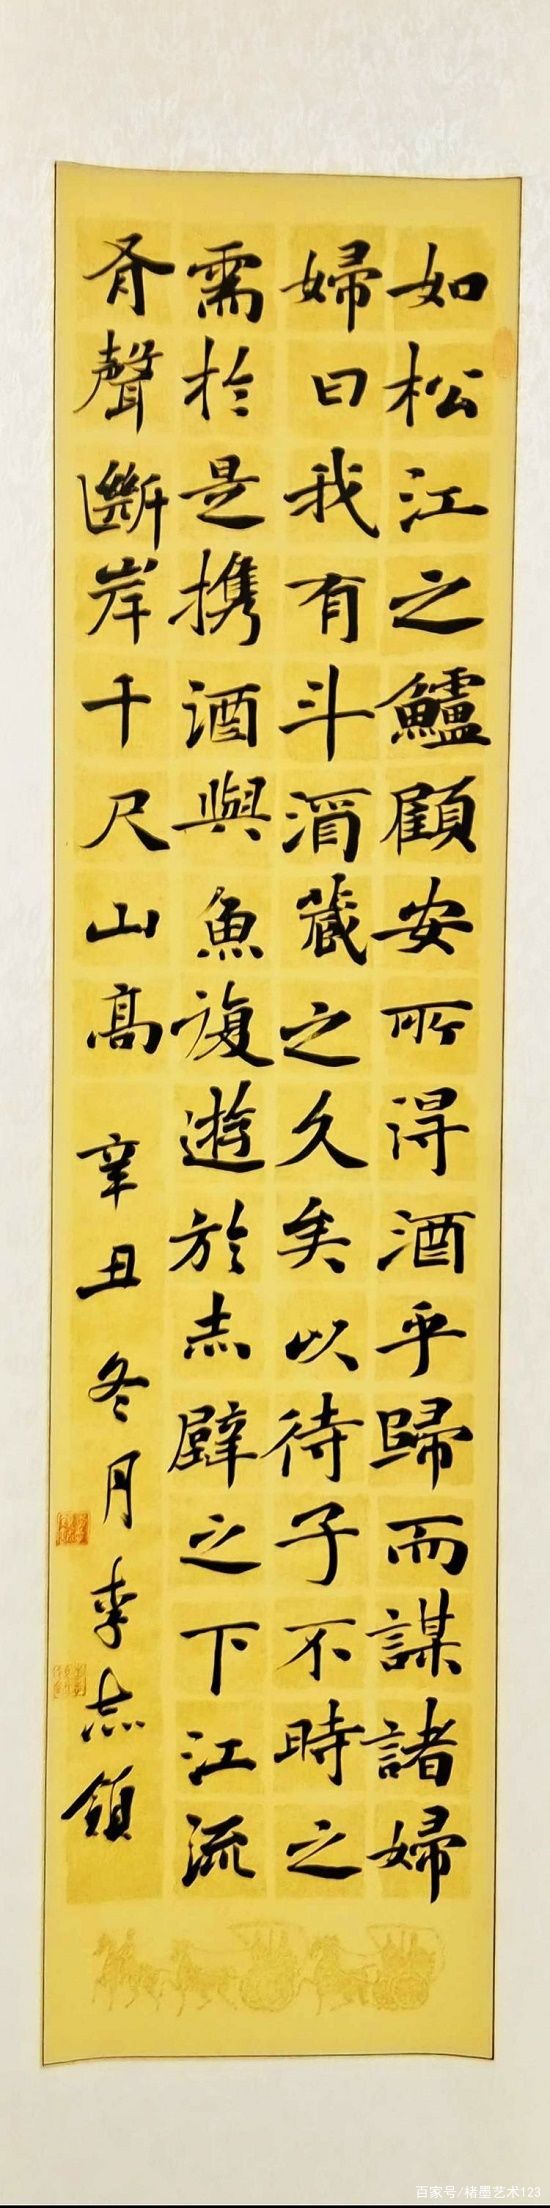 如松江之鱸顧安所得酒乎歸而謀諸婦
婦曰我有斗酒藏之久矣以待子不時之
需於是携酒與魚復遊於赤壁之下江流
有聲斷岸千尺山高 辛丑冬月李志
百家号/楮墨艺术123